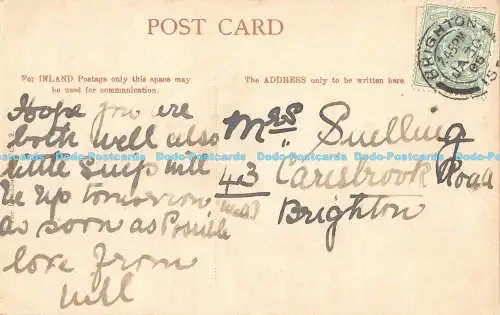 POST CARD
For INLAND Postage only this space may
be used for communication.
The ADDRESS only to be written here.
BRIGHTON
Hope you are
both well also
little Snip will
be up tomorrow
as soon as Possible
love from
Will
Mrs Snelling
43 Carisbrook Road
Brighton
Dodo-Postcards Dodo-Postcards Dodo-Postcards Dodo-Postcards